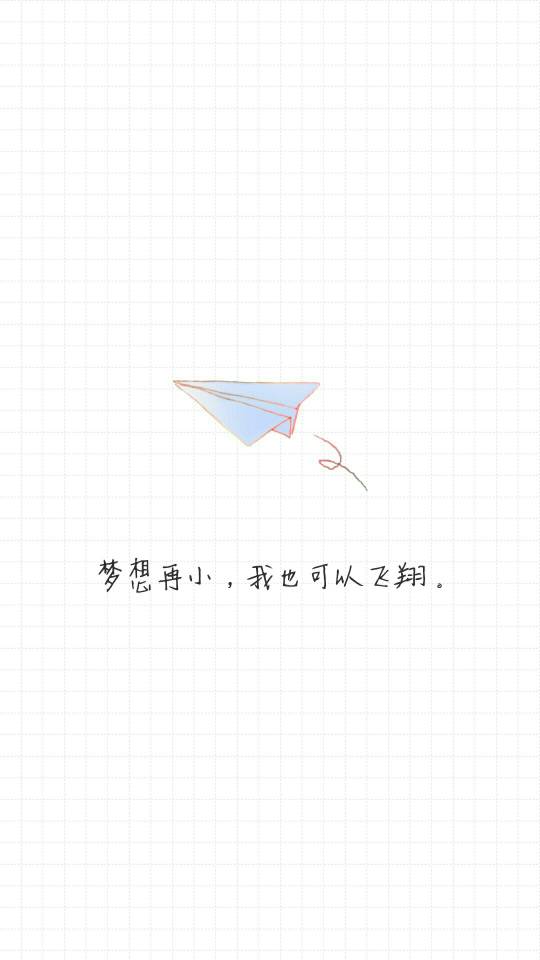 梦想再小，我也可以飞翔。